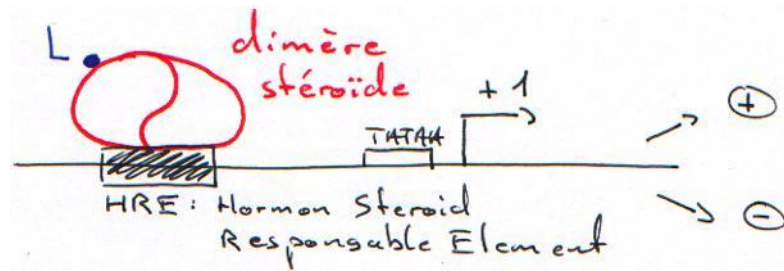 L
dimère
stéroïde
+1
TATAA
+
HRE: Hormon Steroid
Responsable Element
-